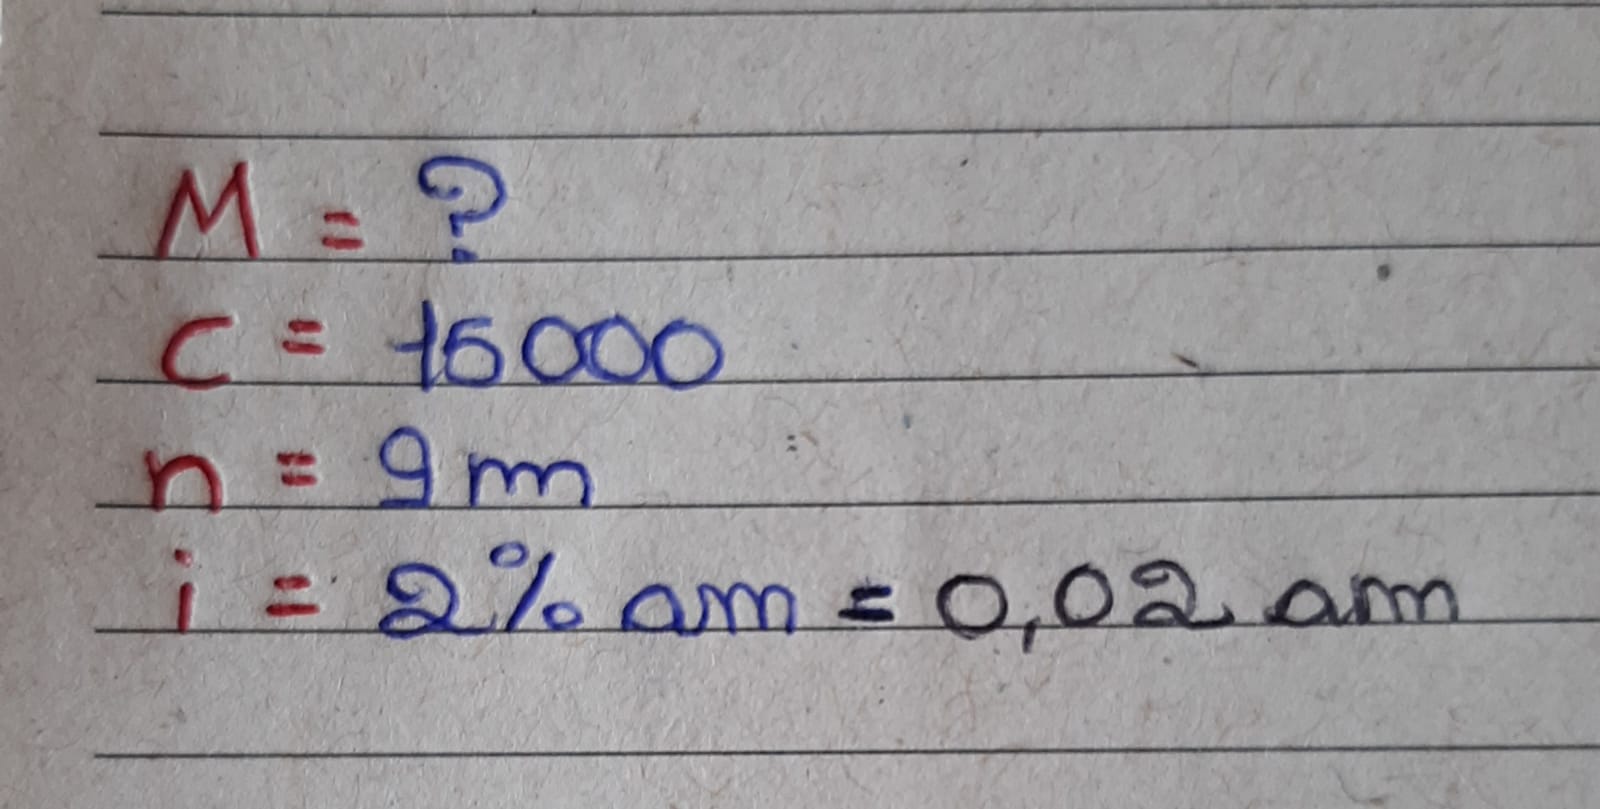 M = ?
C = 15000
n = 9 m
i = 2% am = 0,02 am